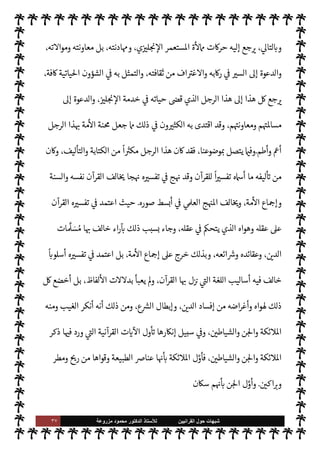 وبالتالي، يرجع إليه حركات ممالأة المستعمر الإنجليزي، ومهادنته، بل معاونته وموالاته،
والدعوة إلى السير في ركابه والاغتراف من ثقافته، والتمثل به في الشؤون الحياتية كافة.
يرجع كل هذا إلى هذا الرجل الذي قضى حياته في خدمة الإنجليز، والدعوة إلى
مسالمتهم ومعاونتهم، وقد اقتدى به الكثيرون في ذلك مما جعل محنة الأمة بهذا الرجل
أعم وأطم.وفيما يتصل بموضوعنا، فقد كان هذا الرجل مكثراً من الكتابة والتأليف، وكان
من تأليفه ما أسماه تفسيراً للقرآن وقد نهج في تفسيره نهجا يخالف القرآن نفسه والسنة
وإجماع الأمة، ويخالف المنهج العلمي في أبسط صوره. حيث اعتمد في تفسيره القرآن
على عقله وهواه الذي يتحكم في عقله، وجاء بسبب ذلك بآراء خالف بها مُسلَّمات
الدين، وعقائده وشرائعه، وبذلك خرج على إجماع الأمة. بل اعتمد في تفسيره أسلوباً
خالف فيه أساليب اللغة التي نزل بها القرآن، ولم يعبأ بدلالات الألفاظ، بل أخضع كل
ذلك لهواه وأغراضه من إفساد الدين. وإبطال الشرع، ومن ذلك أنه أنكر الغيب ومنه
الملائكة والجن والشياطين، وفي سبيل إنكارها تأول الآيات القرآنية التي ورد فيها ذكر
الملائكة والجن والشياطين، فأوَّل الملائكة بأنها عناصر الطبيعة وقواها من ريح ومطر
وبراكين. وأوَّل الجن بأنهم سكان
شبهات حول القرآنيين للأستاذ الدكتور محمود مزروعة ٣٧